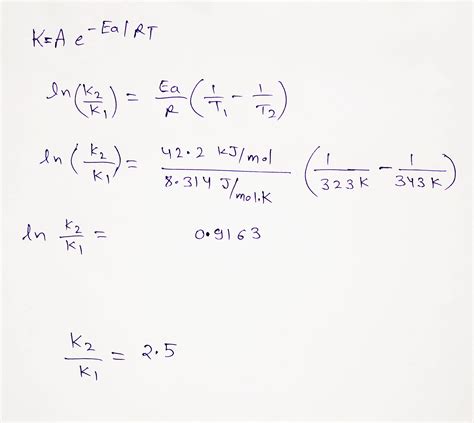 K=A e^-Ea/RT
ln(K2/K1) = Ea/R (1/T1 - 1/T2)
ln(k2/K1) = 42.2 KJ/mol / 8.314 J/mol.K (1/323K - 1/343K)
ln k2/K1 = 0.9163
K2/K1 = 2.5